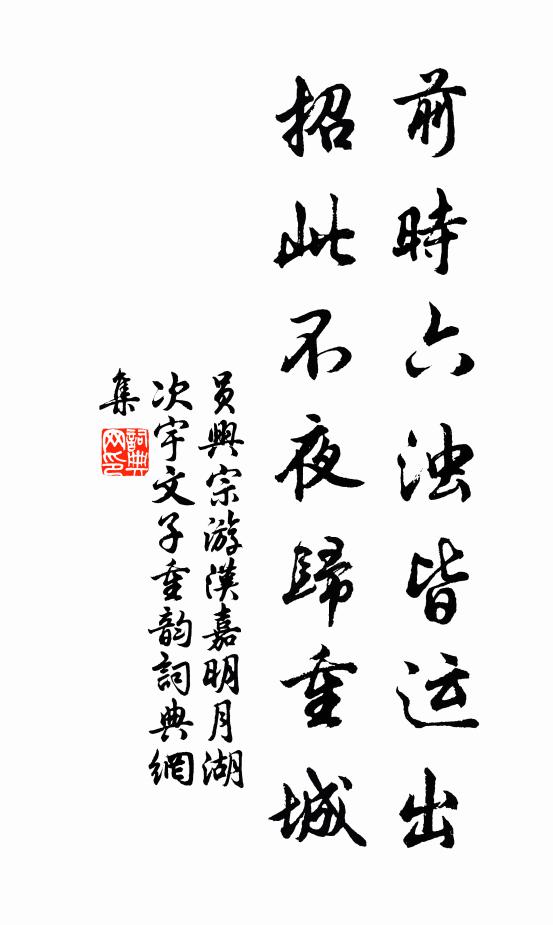 前時六浊皆运出
招此不夜歸重城
员興宗游漢嘉明月湖
次宇文子重韵詞典網
集
詞典网印